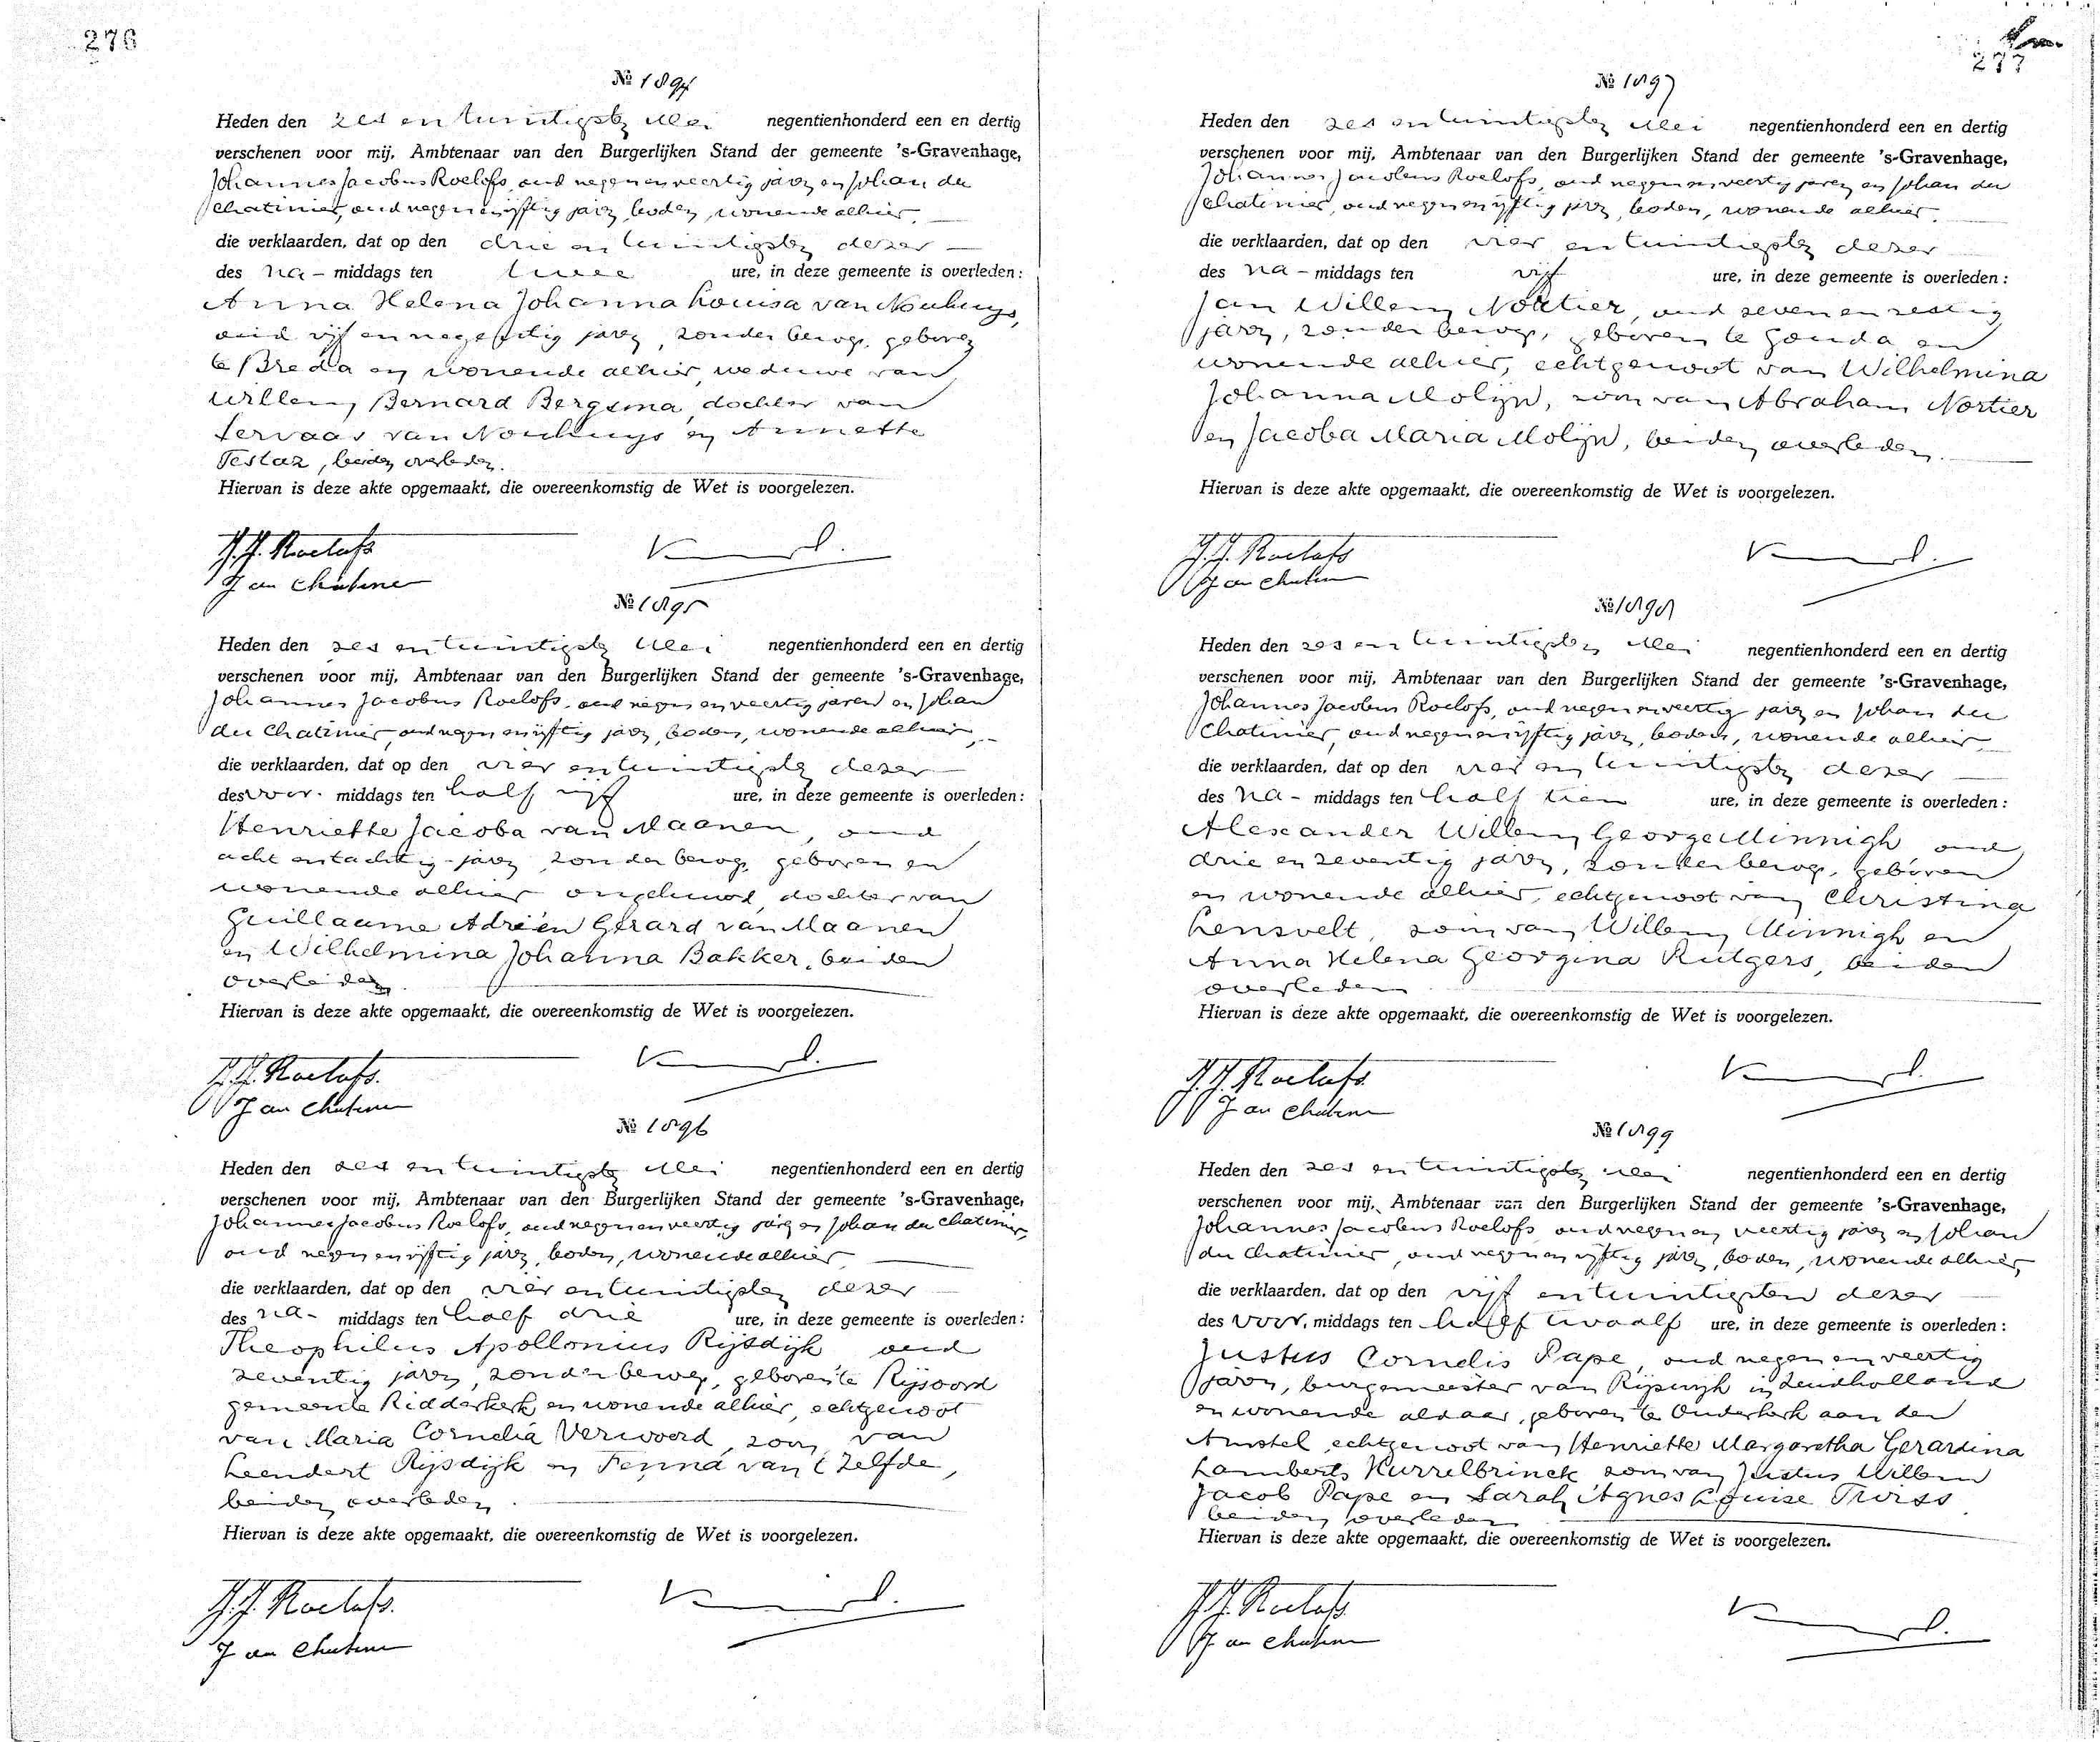 276
№ 1894
Heden den zes en twintigsten Mei negentienhonderd een en dertig
verschenen voor mij, Ambtenaar van den Burgerlijken Stand der gemeente 's-Gravenhage,
Johannes Jacobus Roelofs, oud negen en veertig jaren en Johan du
Chatinier, oud negen en vijftig jaren, boden, wonende alhier,
die verklaarden, dat op den drie en twintigsten dezer
des na-middags ten twee ure, in deze gemeente is overleden:
Anna Helena Johanna Louisa van Nouhuys,
oud vijf en negentig jaren, zonder beroep, geboren
te Breda en wonende alhier, weduwe van
Willem Bernard Bergsma, dochter van
Servaas van Nouhuys en Annette
Testaz, beiden overleden.
Hiervan is deze akte opgemaakt, die overeenkomstig de Wet is voorgelezen.
J.J. Roelofs
J du Chatinier
№ 1895
Heden den zes en twintigsten Mei negentienhonderd een en dertig
verschenen voor mij, Ambtenaar van den Burgerlijken Stand der gemeente 's-Gravenhage,
Johannes Jacobus Roelofs, oud negen en veertig jaren en Johan
du Chatinier, oud negen en vijftig jaren, boden, wonende alhier,
die verklaarden, dat op den vier en twintigsten dezer
des voor-middags ten half vijf ure, in deze gemeente is overleden:
Henriette Jacoba van Maanen, oud
acht en tachtig jaren, zonder beroep, geboren en
wonende alhier ongehuwd, dochter van
Guillaume Adrien Gerard van Maanen
en Wilhelmina Johanna Bakker, beiden
overleden.
Hiervan is deze akte opgemaakt, die overeenkomstig de Wet is voorgelezen.
J.J. Roelofs.
J du Chatinier
№ 1896
Heden den zes en twintigsten Mei negentienhonderd een en dertig
verschenen voor mij, Ambtenaar van den Burgerlijken Stand der gemeente 's-Gravenhage,
Johannes Jacobus Roelofs, oud negen en veertig jaren en Johan du Chatinier,
oud negen en vijftig jaren, boden, wonende alhier,
die verklaarden, dat op den vier en twintigsten dezer
des na-middags ten half drie ure, in deze gemeente is overleden:
Theophilus Apollonius Rijsdijk oud
zeventig jaren, zonder beroep, geboren te Rijsoord
gemeente Ridderkerk en wonende alhier, echtgenoot
van Maria Cornelia Verwoerd, zoon van
Leendert Rijsdijk en Fenna van 't Zelfde,
beiden overleden.
Hiervan is deze akte opgemaakt, die overeenkomstig de Wet is voorgelezen.
J.J. Roelofs.
J du Chatinier
277
№ 1897
Heden den zes en twintigsten Mei negentienhonderd een en dertig
verschenen voor mij, Ambtenaar van den Burgerlijken Stand der gemeente 's-Gravenhage,
Johannes Jacobus Roelofs, oud negen en veertig jaren en Johan du
Chatinier, oud negen en vijftig jaren, boden, wonende alhier,
die verklaarden, dat op den vier en twintigsten dezer
des na-middags ten vijf ure, in deze gemeente is overleden:
Jan Willem Nortier, oud zeven en zestig
jaren, zonder beroep, geboren te Gouda en
wonende alhier, echtgenoot van Wilhelmina
Johanna Molijn, zoon van Abraham Nortier
en Jacoba Maria Molijn, beiden overleden.
Hiervan is deze akte opgemaakt, die overeenkomstig de Wet is voorgelezen.
J.J. Roelofs
J du Chatinier
№ 1898
Heden den zes en twintigsten Mei negentienhonderd een en dertig
verschenen voor mij, Ambtenaar van den Burgerlijken Stand der gemeente 's-Gravenhage,
Johannes Jacobus Roelofs, oud negen en veertig jaren en Johan du
Chatinier, oud negen en vijftig jaren, boden, wonende alhier,
die verklaarden, dat op den vier en twintigsten dezer
des na-middags ten half tien ure, in deze gemeente is overleden:
Alexander Willem George Minnigh oud
drie en zeventig jaren, zonder beroep, geboren
en wonende alhier, echtgenoot van Christina
Lensvelt, zoon van Willem Minnigh en
Anna Helena Georgina Rutgers, beiden
overleden.
Hiervan is deze akte opgemaakt, die overeenkomstig de Wet is voorgelezen.
J.J. Roelofs.
J du Chatinier
№ 1899
Heden den zes en twintigsten Mei negentienhonderd een en dertig
verschenen voor mij, Ambtenaar van den Burgerlijken Stand der gemeente 's-Gravenhage,
Johannes Jacobus Roelofs oud negen en veertig jaren en Johan
du Chatinier, oud negen en vijftig jaren, boden, wonende alhier,
die verklaarden, dat op den vijf en twintigsten dezer
des voor-middags ten half twaalf ure, in deze gemeente is overleden:
Justus Cornelis Pape, oud negen en veertig
jaren, burgemeester van Rijswijk in Zuidholland
en wonende aldaar, geboren te Ouderkerk aan den
Amstel, echtgenoot van Henriette Margaretha Gerardina
Lamberts Hurrelbrinck zoon van Justus Willem
Jacob Pape en Sarah Agnes Louise Twiss
beiden overleden
Hiervan is deze akte opgemaakt, die overeenkomstig de Wet is voorgelezen.
J.J. Roelofs
J du Chatinier